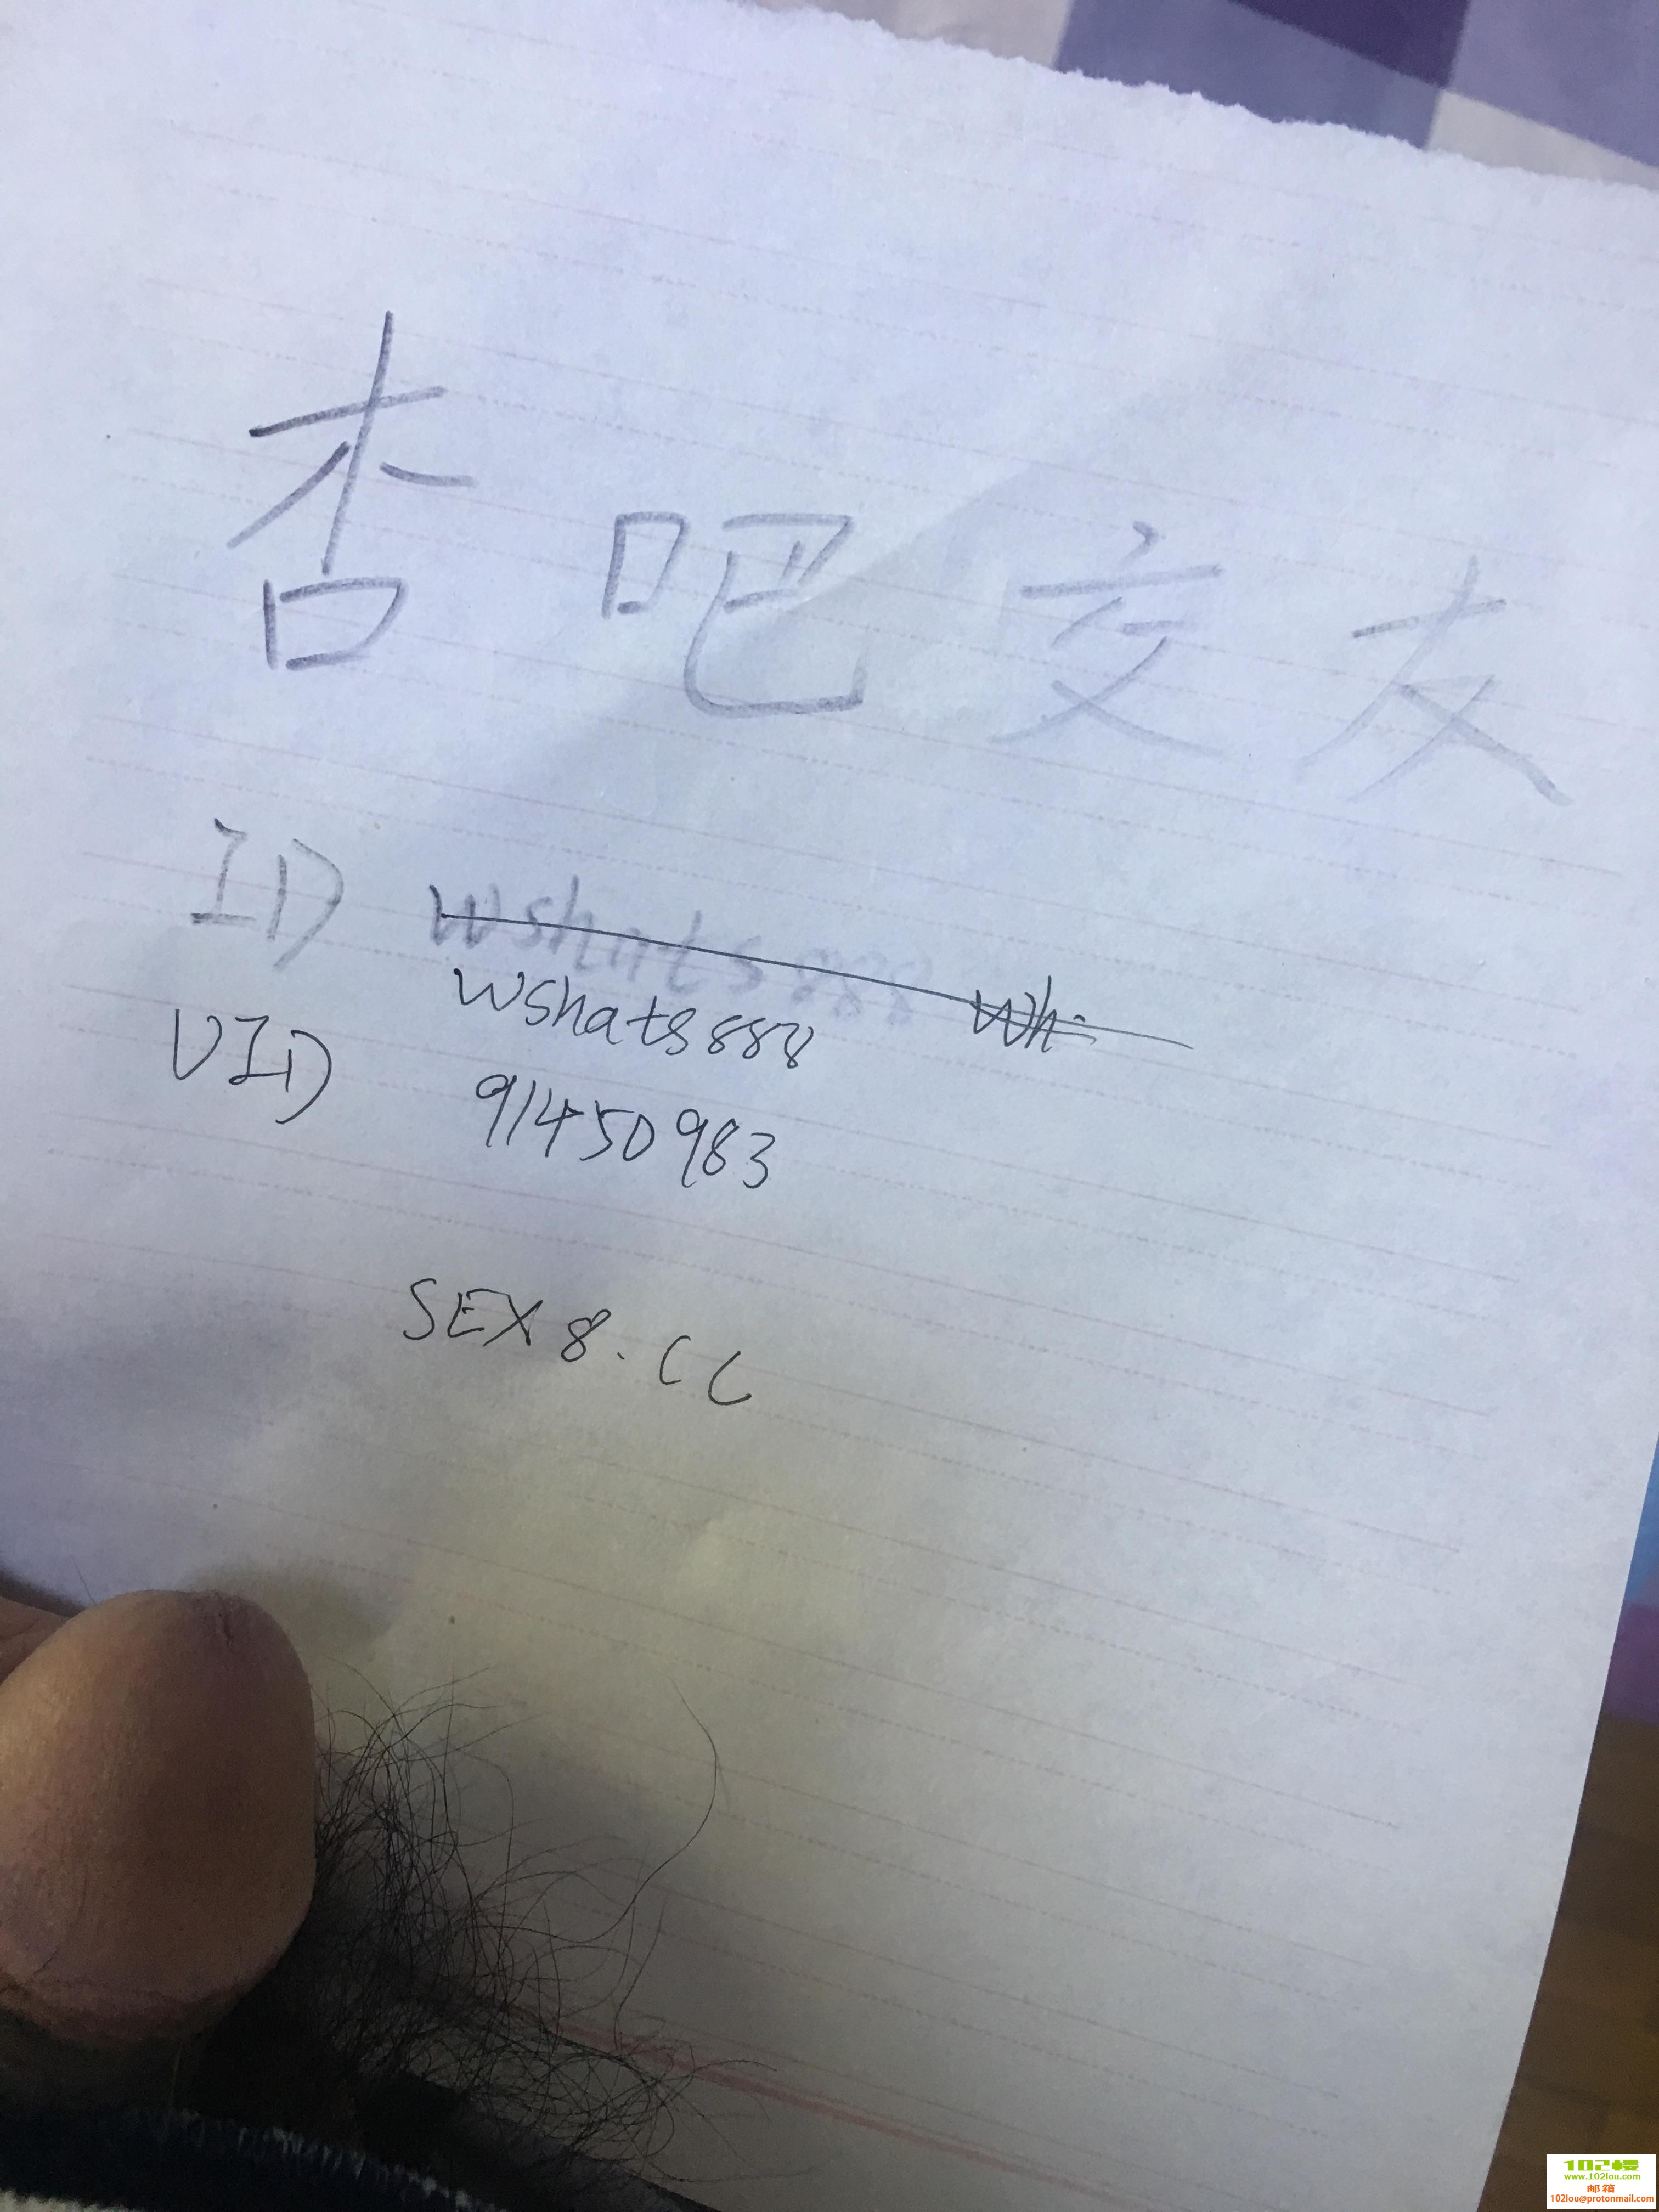 杏吧交友
ID wshats888 Wh
wshats888
UID 91450983
SEX8.CC
102楼
www.102lou.com
邮箱
102lou@protonmail.com